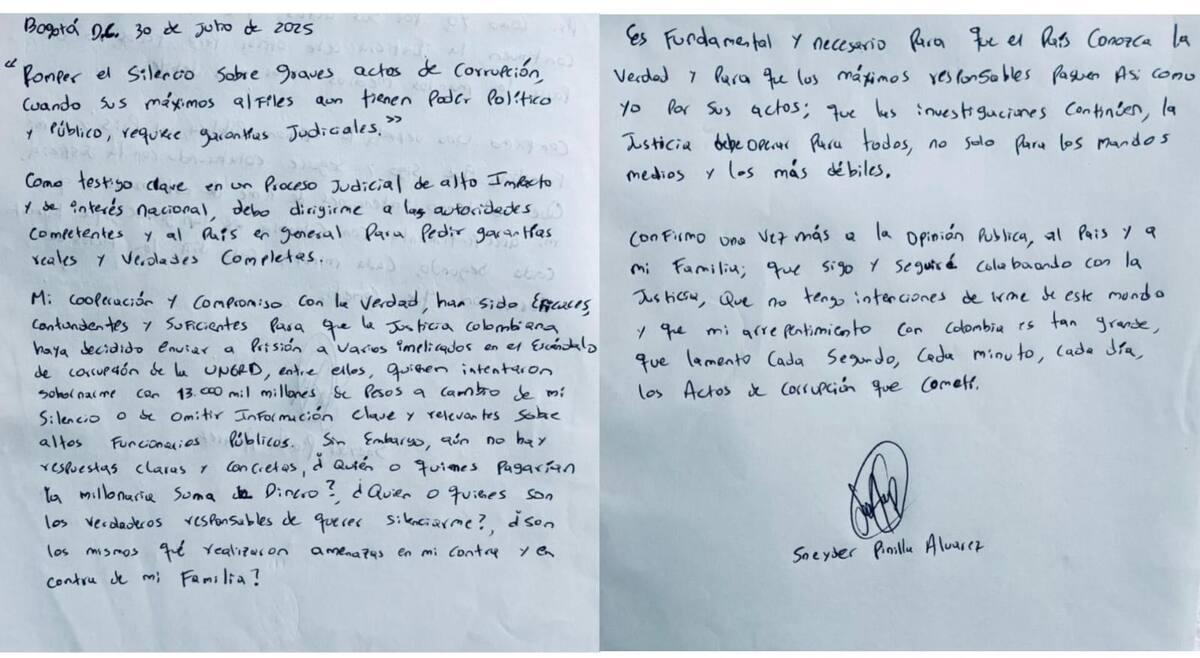 Bogotá D.C. 30 de Julio de 2025
"Romper el Silencio sobre graves actos de Corrupción,
Cuando sus máximos alfiles aun tienen Poder Político
y Público, requiere garantías Judiciales."
Como testigo clave en un Proceso Judicial de alto Impacto
y de interés Nacional, debo dirigirme a las autoridades
Competentes y al País en general Para Pedir garantías
reales y Verdades Completas.
Mi cooperación y Compromiso con la Verdad, han sido Eficaces,
Contundentes y Suficientes Para que la Justicia colombiana
haya decidido enviar a Prisión a Varios implicados en el Escándalo
de corrupción de la UNGRD, entre ellos, quienes intentaron
sobornarme con 13.000 mil millones de Pesos a cambio de mi
Silencio o de omitir Información Clave y relevantes sobre
altos Funcionarios Públicos. Sin Embargo, aún no hay
respuestas claras y concretas, ¿Quién o quienes Pagarían
la millonaria Suma de Dinero?, ¿Quien o quienes son
los verdaderos responsables de querer silenciarme?, ¿son
los mismos qué realizaron amenazas en mi contra y en
contra de mi Familia?
Es Fundamental y necesario Para que el País Conozca la
Verdad y Para que los máximos responsables Paguen Asi como
yo Por sus actos; que las investigaciones Continúen, la
Justicia debe operar Para todos, no solo para los mandos
medios y los más débiles.
Confirmo una vez más a la Opinión Publica, al Pais y a
mi Familia; que sigo y seguiré colaborando con la
Justicia, Que no tengo intenciones de irme de este mondo
y que mi arrepentimiento con colombia es tan grande,
que lamento Cada Segundo, Cada minuto, cada día,
los Actos de corrupción que Cometí.
Sneyder Pinilla Alvarez